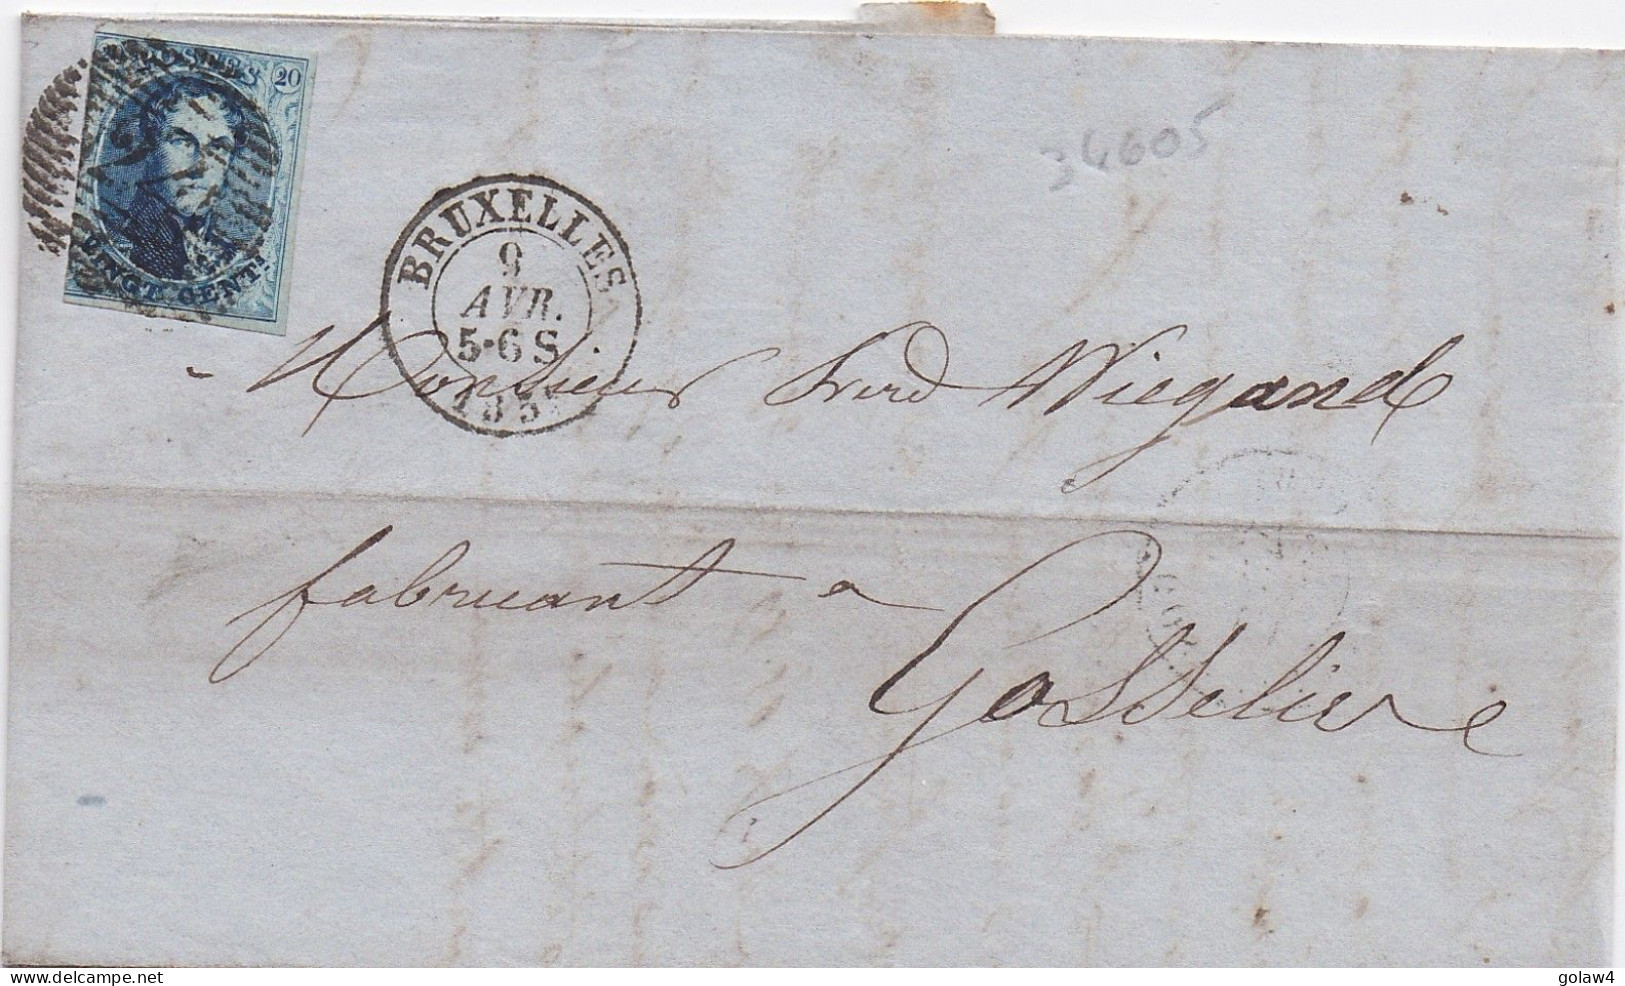 POSTES 20
VINGT CENT.
34605
BRUXELLES
9
AVR.
5-6 S
185
Monsieur Ferd Wiegand
fabricant a
Gosselies
www.delcampe.net
golaw4